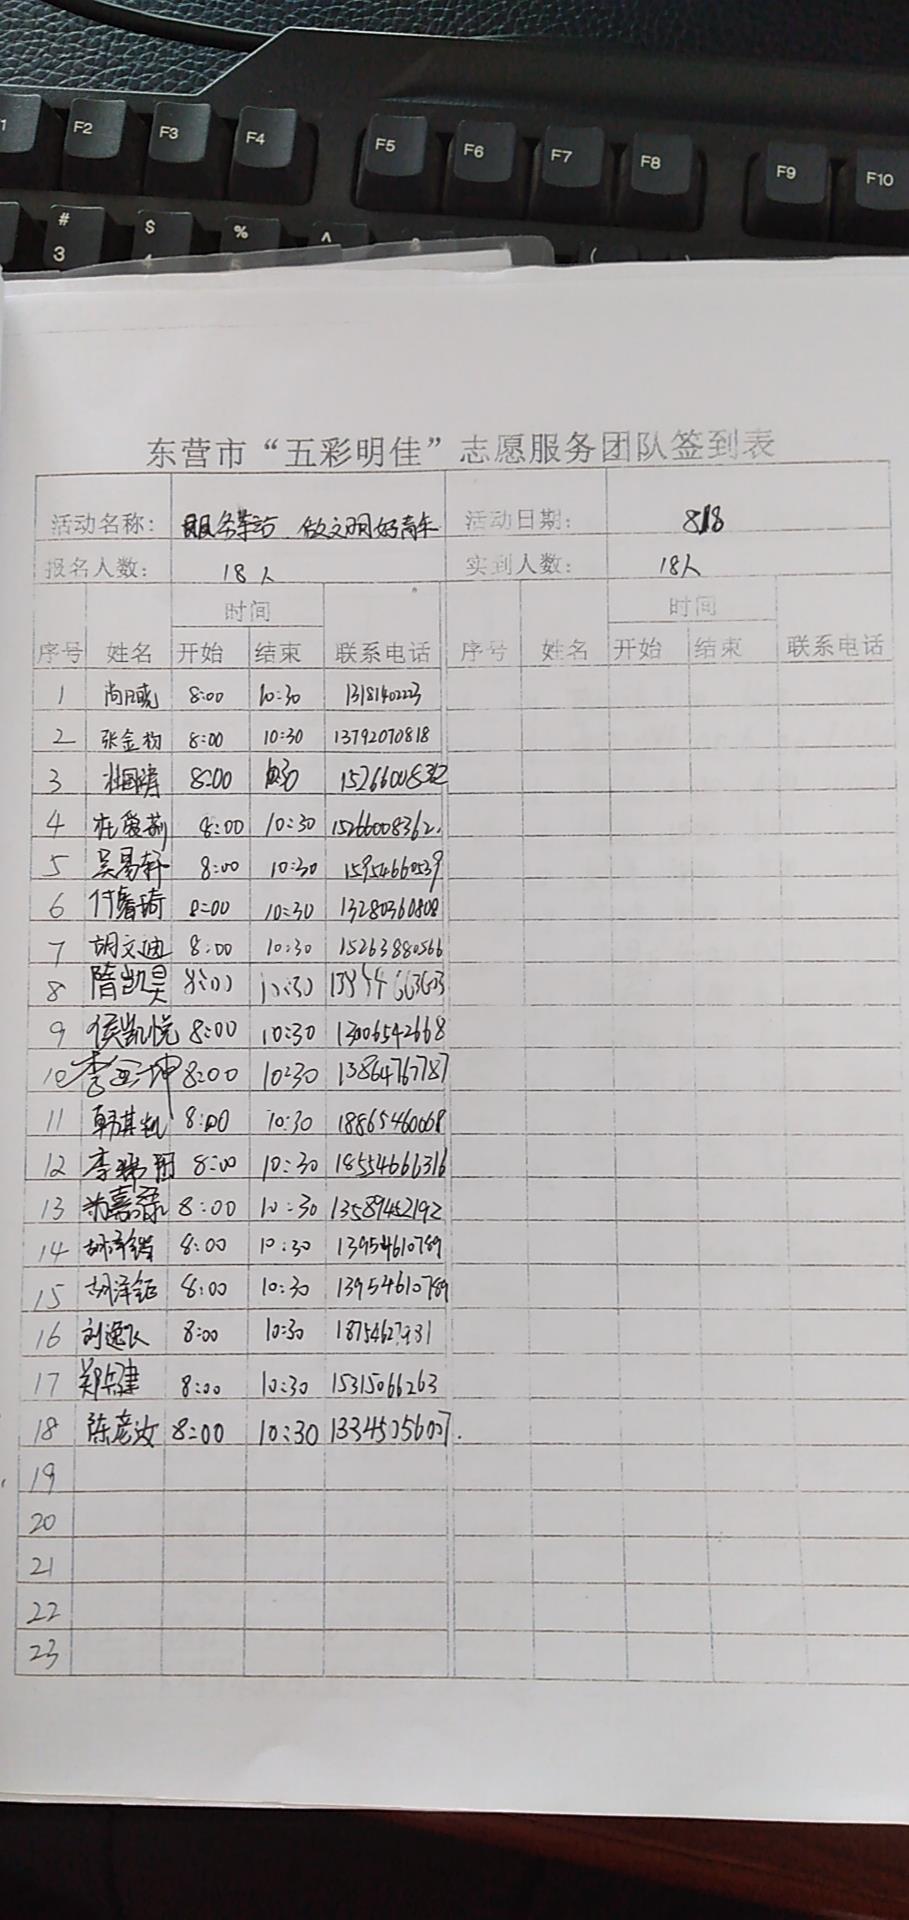 F2 F3 F4 F5 F6 F7 F8 F9 F10
# $ % ^ & * ( )
3 4 5
东营市“五彩明佳”志愿服务团队签到表
活动名称: 服务车站 做文明好青年 活动日期: 8/8
报名人数: 18人 实到人数: 18人
时间 时间
序号 姓名 开始 结束 联系电话 序号 姓名 开始 结束 联系电话
1 8:00 10:30 1318140223
2 张金 8:00 10:30 13792070818
3 8:00
4 8:00 10:30 15266008362
5 吴易轩 8:00 10:30 15954660539
6 付睿琦 8:00 10:30 13280360808
7 胡文迪 8:00 10:30 15263880566
8 隋凯昊 8:00 10:30
9 侯凯悦 8:00 10:30 13006542668
10 李 坤 8:00 10:30 13864767787
11 韩其凯 8:00 10:30 18865460068
12 李 8:00 10:30 18554666316
13 嘉 8:00 10:30 13589452192
14 胡泽 8:00 10:30 13954610789
15 胡泽钰 8:00 10:30 13954610789
16 刘逸飞 8:00 10:30
17 郑 健 8:00 10:30 15315066263
18 陈彦汝 8:00 10:30 13345056007.
19
20
21
22
23